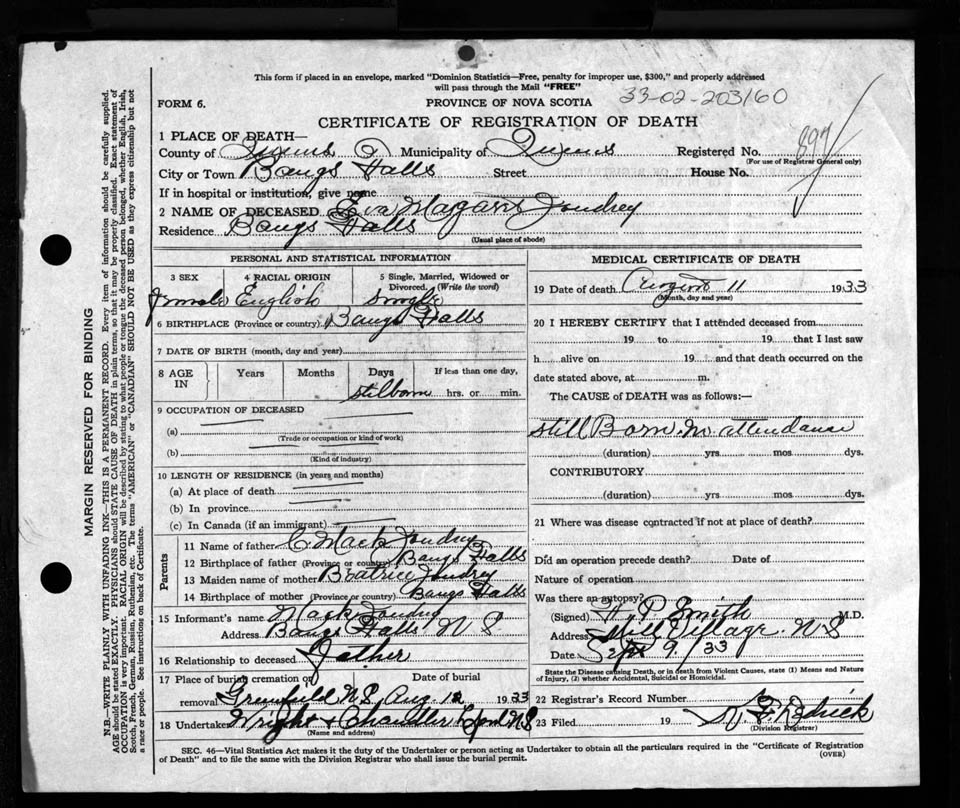 This form if placed in an envelope, marked "Dominion Statistics—Free, penalty for improper use, $300," and properly addressed
will pass through the Mail "FREE"
FORM 6.
PROVINCE OF NOVA SCOTIA
33-02-203160
CERTIFICATE OF REGISTRATION OF DEATH
1 PLACE OF DEATH—
County of Queens Municipality of Queens Registered No. 897
(For use of Registrar General only)
City or Town Bangs Falls Street House No.
If in hospital or institution, give name
2 NAME OF DECEASED Eva Joudrey
Residence Bangs Falls
(Usual place of abode)
PERSONAL AND STATISTICAL INFORMATION
3 SEX female
4 RACIAL ORIGIN English
5 Single, Married, Widowed or Divorced. (Write the word) single
6 BIRTHPLACE (Province or country) Bangs Falls
7 DATE OF BIRTH (month, day and year)
8 AGE IN Years Months Days If less than one day,
stilborn hrs. or min.
9 OCCUPATION OF DECEASED
(a)
(Trade or occupation or kind of work)
(b)
(Kind of industry)
10 LENGTH OF RESIDENCE (in years and months)
(a) At place of death
(b) In province
(c) In Canada (if an immigrant)
Parents
11 Name of father C Mack Joudrey
12 Birthplace of father (Province or country) Bangs Falls
13 Maiden name of mother Beatrice Joudrey
14 Birthplace of mother (Province or country) Bangs Falls
15 Informant's name Mack Joudrey
Address Bangs Falls N S
16 Relationship to deceased father
17 Place of burial cremation or removal Date of burial
Greenfield N.S. Aug 12 1933
18 Undertaker Wright & Chandler N S
(Name and address)
MEDICAL CERTIFICATE OF DEATH
19 Date of death August 11 1933
(Month, day and year)
20 I HEREBY CERTIFY that I attended deceased from
19 to 19 that I last saw
h alive on 19 and that death occurred on
date stated above, at m.
The CAUSE OF DEATH was as follows:—
still Born. no attendance
(duration) yrs. mos dys.
CONTRIBUTORY
(duration) yrs. mos. dys.
21 Where was disease contracted if not at place of death?
Did an operation precede death? Date of
Nature of operation
Was there an autopsy?
(Signed) P Smith M.D.
Address Mill Village. N S
Date Sept 9/33
State the Disease causing Death, or in death from Violent Causes, state (1) Means and Nature
of Injury, (2) whether Accidental, Suicidal or Homicidal.
22 Registrar's Record Number
23 Filed 19
(Division Registrar)
SEC. 46—Vital Statistics Act makes it the duty of the Undertaker or person acting as Undertaker to obtain all the particulars required in the "Certificate of Registration
of Death" and to file the same with the Division Registrar who shall issue the burial permit.
(OVER)
MARGIN RESERVED FOR BINDING
N.B.—WRITE PLAINLY WITH UNFADING INK—THIS IS A PERMANENT RECORD. Every item of information should be carefully supplied.
AGE should be stated EXACTLY. PHYSICIANS should STATE CAUSE OF DEATH in plain terms, so that it may be properly classified. Exact statement of
OCCUPATION is very important. RACIAL ORIGIN will be described by stating to what people or tongue the deceased person belonged, whether English, Irish,
Scotch, French, German, Russian, Ruthenian, etc. The terms "AMERICAN" or "CANADIAN" SHOULD NOT BE USED as they express citizenship but not
a race or people. See instructions on back of Certificate.